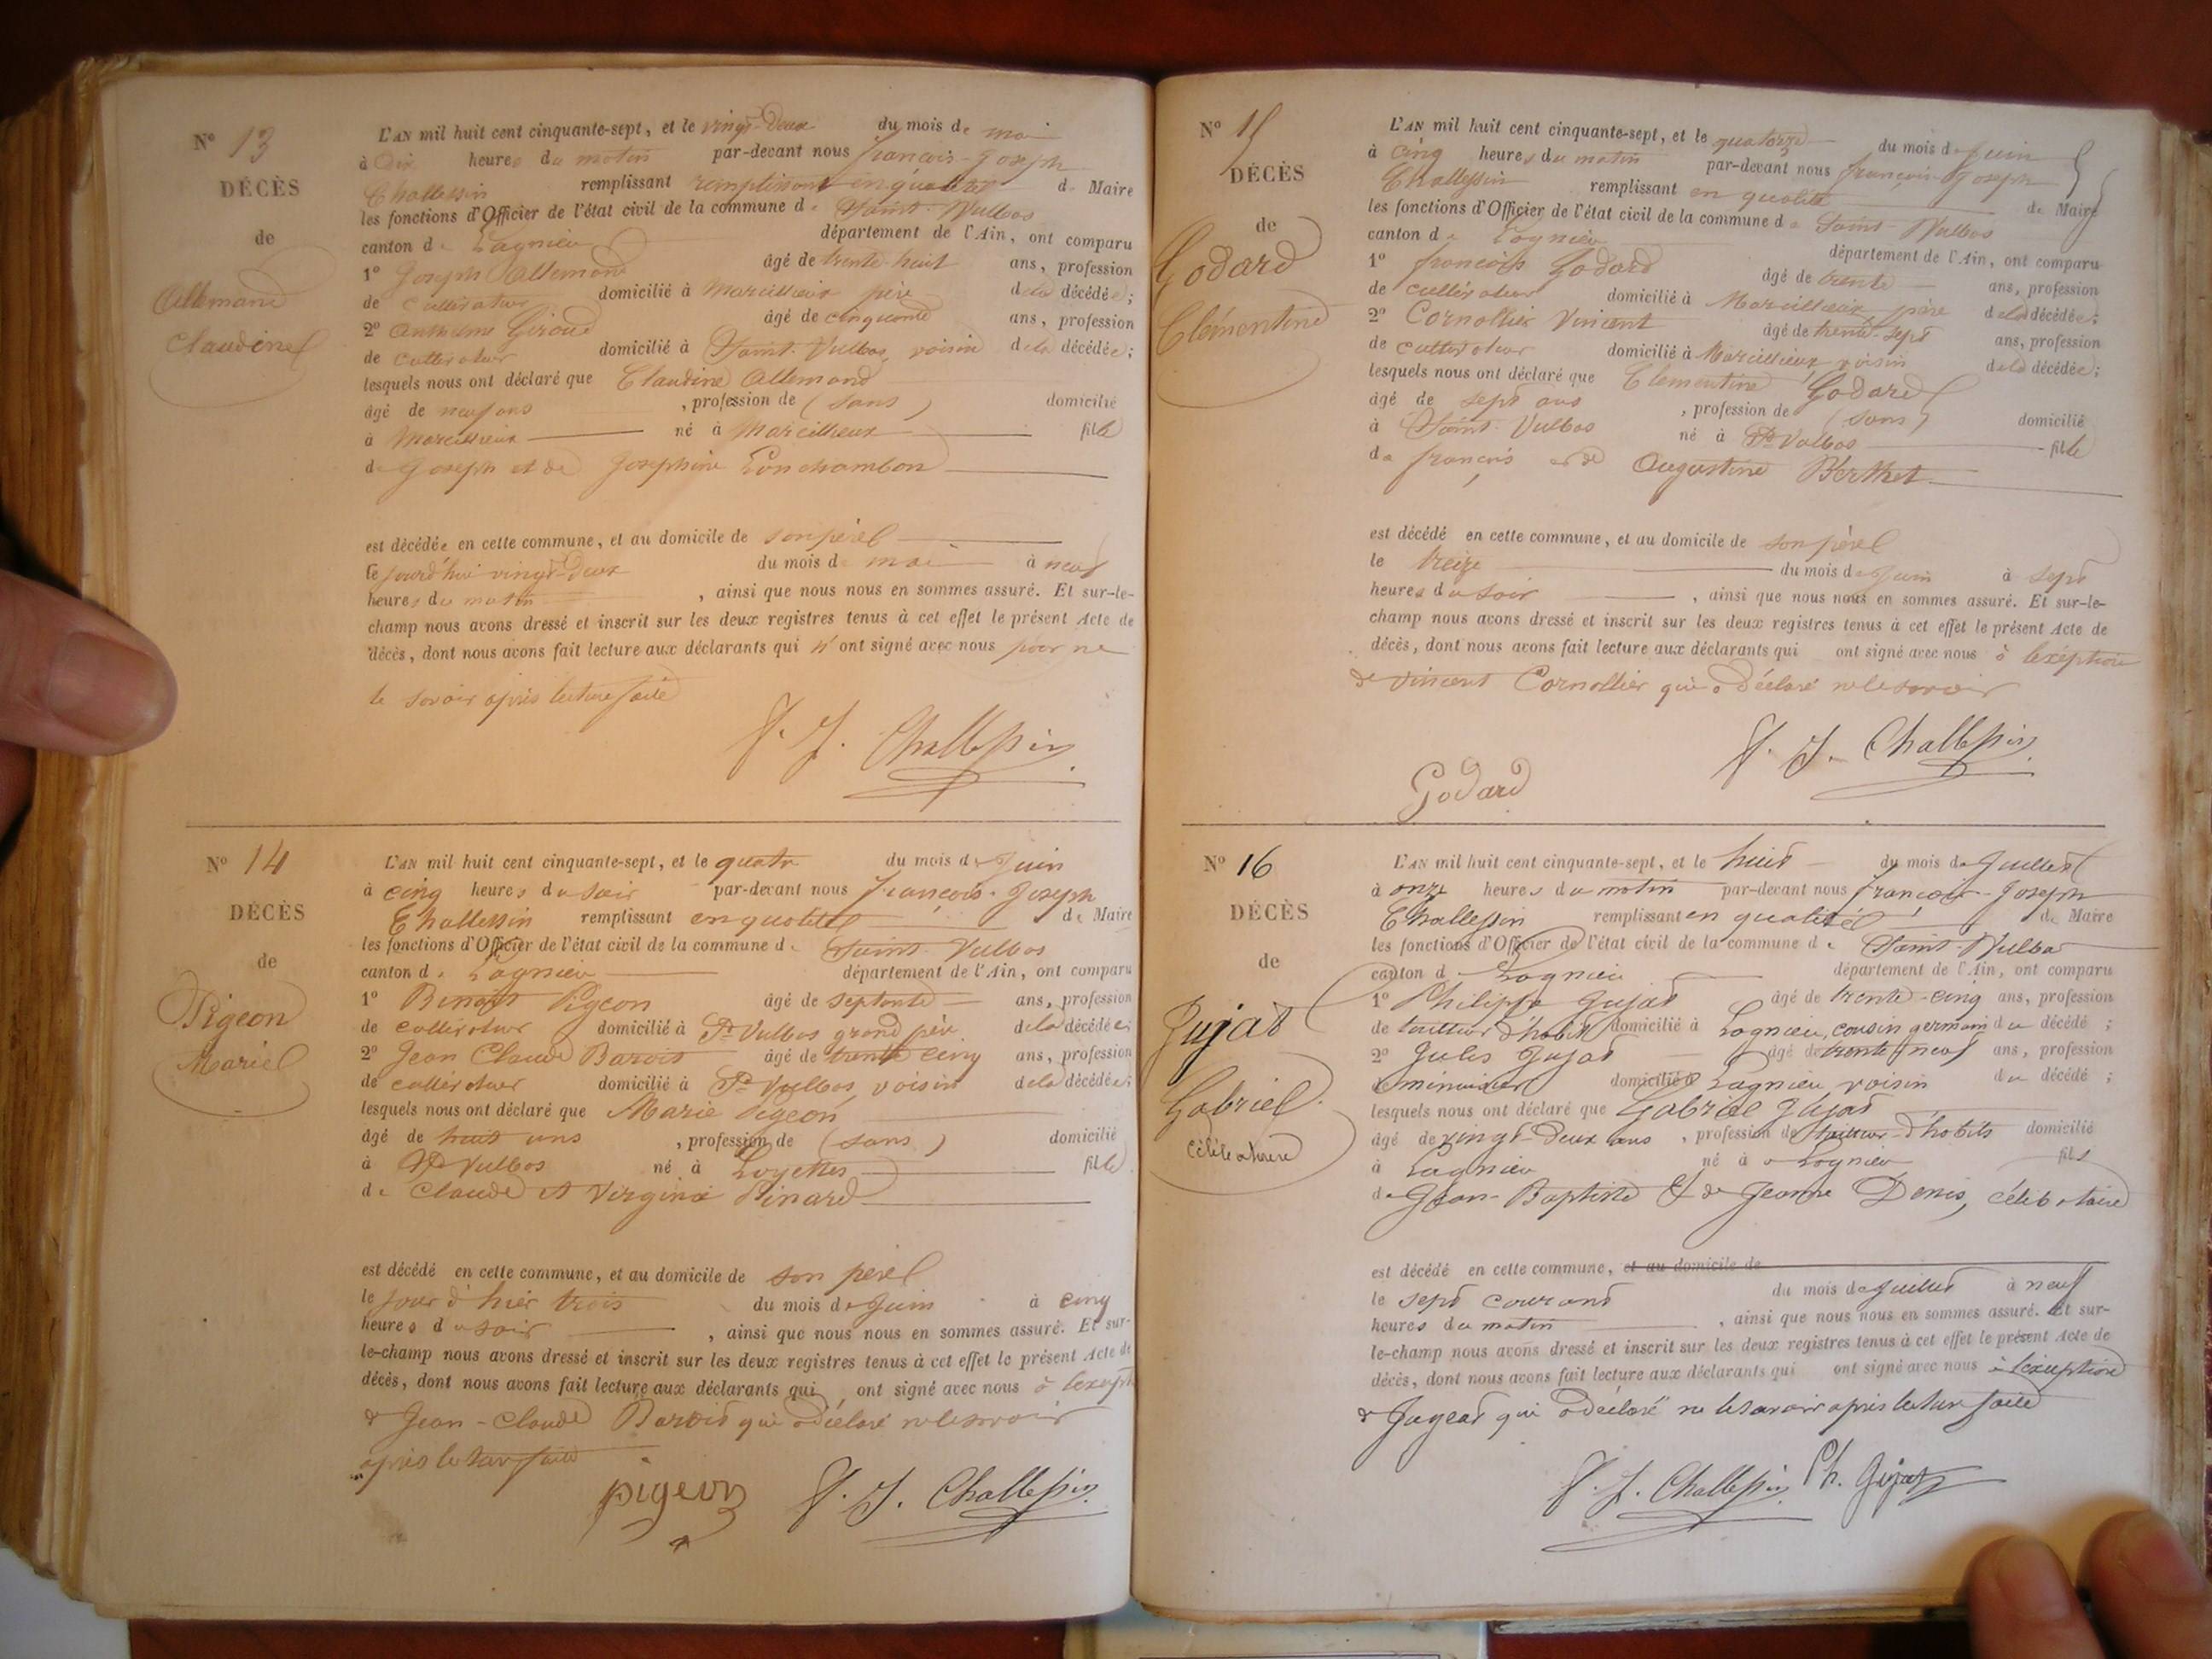 N° 13
DÉCÈS
de
Allemand
Claudine
L'AN mil huit cent cinquante-sept, et le vingt-deux du mois de mai
à dix heures du matin par-devant nous françois-Joseph
Challessin remplissant remplissant en qualité de Maire
les fonctions d'Officier de l'état civil de la commune de Saint-Vulbas
canton de Lagnieu département de l'Ain, ont comparu
1° Joseph Allemand âgé de trente huit ans, profession
de cultivateur domicilié à Marcilleux père de la décédée;
2° Anthelme Giroud âgé de cinquante ans, profession
de cultivateur domicilié à Saint-Vulbas, voisin de la décédée;
lesquels nous ont déclaré que Claudine Allemand
âgé de neuf ans , profession de (sans) domicilié
à Marcilleux né à Marcilleux fille
de Joseph et de Josephine Ponchambon
est décédée en cette commune, et au domicile de son père
le jourd'hui vingt-deux du mois de mai à neuf
heures du matin , ainsi que nous nous en sommes assuré. Et sur-le-
champ nous avons dressé et inscrit sur les deux registres tenus à cet effet le présent Acte de
décès, dont nous avons fait lecture aux déclarants qui n'ont signé avec nous pour ne
le savoir après lecture faite
F. J. Challessin
N° 14
DÉCÈS
de
Pigeon
Marie
L'AN mil huit cent cinquante-sept, et le quatre du mois de Juin
à cinq heures du soir par-devant nous François-Joseph
Challessin remplissant en qualité de Maire
les fonctions d'Officier de l'état civil de la commune de Saint-Vulbas
canton de Lagnieu département de l'Ain, ont comparu
1° Benoît Pigeon âgé de septente ans, profession
de cultivateur domicilié à St Vulbas grand père de la décédée;
2° Jean Claude Barvis âgé de trente cinq ans, profession
de cultivateur domicilié à St Vulbas, voisin de la décédée;
lesquels nous ont déclaré que Marie Pigeon
âgé de huit ans , profession de (sans) domicilié
à St Vulbas né à Loyettes fille
de Claude et Virginie Pinard
est décédé en cette commune, et au domicile de son père
le jour d'hier trois du mois de Juin à cinq
heures du soir , ainsi que nous nous en sommes assuré. Et sur-
le-champ nous avons dressé et inscrit sur les deux registres tenus à cet effet le présent Acte de
décès, dont nous avons fait lecture aux déclarants qui ont signé avec nous à l'except
de Jean-Claude Barvis qui a déclaré ne le savoir
après lecture faite
pigeon F. J. Challessin
N° 15
DÉCÈS
de
Godard
Clémentine
L'AN mil huit cent cinquante-sept, et le quatorze du mois de Juin
à cinq heures du matin par-devant nous françois Joseph
Challessin remplissant en qualité de Maire
les fonctions d'Officier de l'état civil de la commune de Saint-Vulbas
canton de Lagnieu département de l'Ain, ont comparu
1° francois Godard âgé de trente ans, profession
de cultivateur domicilié à Marcilleux, père de la décédée;
2° Cornollier Vincent âgé de trente-sept ans, profession
de cultivateur domicilié à Marcilleux voisin de la décédée;
lesquels nous ont déclaré que Clementine Godard
âgé de sept ans , profession de (sans) domicilié
à Saint-Vulbas né à St Vulbas fille
de françois et de Augustine Berthet
est décédé en cette commune, et au domicile de son père
le treize du mois de Juin à sept
heures du soir , ainsi que nous nous en sommes assuré. Et sur-le-
champ nous avons dressé et inscrit sur les deux registres tenus à cet effet le présent Acte de
décès, dont nous avons fait lecture aux déclarants qui ont signé avec nous à l'exéption
de Vincent Cornollier qui a déclaré ne le savoir
F. J. Challessin
Godard
N° 16
DÉCÈS
de
Jujat
Gabriel
célibataire
L'AN mil huit cent cinquante-sept, et le huit du mois de Juillet
à onze heures du matin par-devant nous françois-Joseph
Challessin remplissant en qualité de Maire
les fonctions d'Officier de l'état civil de la commune de Saint-Vulbas
canton de Lagnieu département de l'Ain, ont comparu
1° Philippe Jujat âgé de trente-cinq ans, profession
de tailleur d'habit domicilié à Lagnieu, cousin germain du décédé ;
2° Jules Jujat âgé de trente neuf ans, profession
de menuisier domicilié à Lagnieu voisin du décédé ;
lesquels nous ont déclaré que Gabriel Jujat
âgé de vingt-deux ans , profession de tailleur-d'habits domicilié
à Lagnieu né à Lagnieu fils
de Jean-Baptiste & de Jeanne Denis, célibataire
est décédé en cette commune, et au domicile de
le sept courant du mois de Juillet à neuf
heures du matin , ainsi que nous nous en sommes assuré. Et sur-
le-champ nous avons dressé et inscrit sur les deux registres tenus à cet effet le présent Acte de
décès, dont nous avons fait lecture aux déclarants qui ont signé avec nous à l'exception
de Jugeat qui a déclaré ne le savoir après lecture faite
F. J. Challessin Ph. Gujat